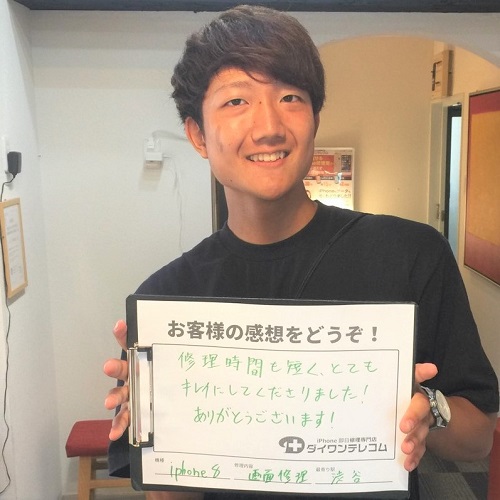 お客様の感想をどうぞ！
修理時間も短く、とても
キレイにしてくださりました！
ありがとうございます！
iPhone 即日修理専門店
ダイワンテレコム
機種 iphone 8 修理内容 画面修理 最寄り駅 渋谷